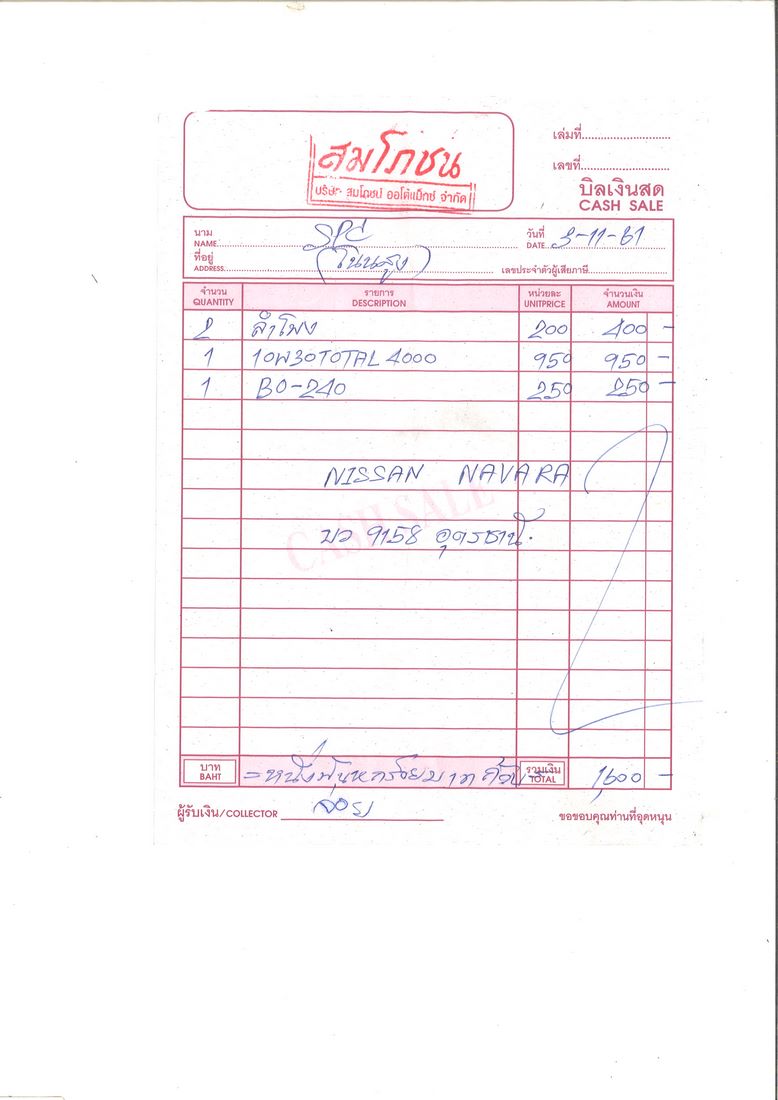 เล่มที่
สมโภชน์
บริษัท สมโภชน์ ออโต้แม็กซ์ จำกัด
เลขที่
บิลเงินสด
CASH SALE
นาม SPC วันที่ 3-11-61
NAME DATE
ที่อยู่ (โนนสูง)
ADDRESS เลขประจำตัวผู้เสียภาษี
จำนวน รายการ หน่วยละ จำนวนเงิน
QUANTITY DESCRIPTION UNITPRICE AMOUNT
2 ลำโพง 200 400 -
1 10W30 TOTAL 4000 950 950 -
1 BO-240 250 250 -
NISSAN NAVARA
CASH SALE
บว 9158 อุดรธานี.
บาท =หนึ่งพันหกร้อยบาทถ้วน= รวมเงิน 1,600 -
BAHT TOTAL
ผู้รับเงิน/COLLECTOR ขอขอบคุณท่านที่อุดหนุน